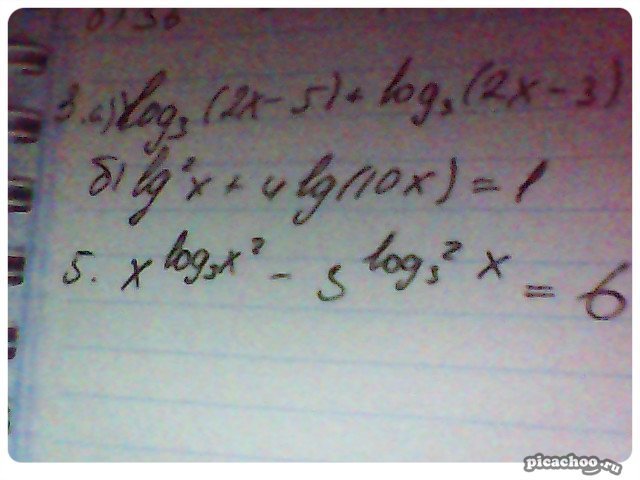 3. а) log₃(2x-5) + log₃(2x-3)
б) lg²x + 4 lg(10x) = 1
5. x^log₃x² - 3^log₃²x = 6
picachoo.ru